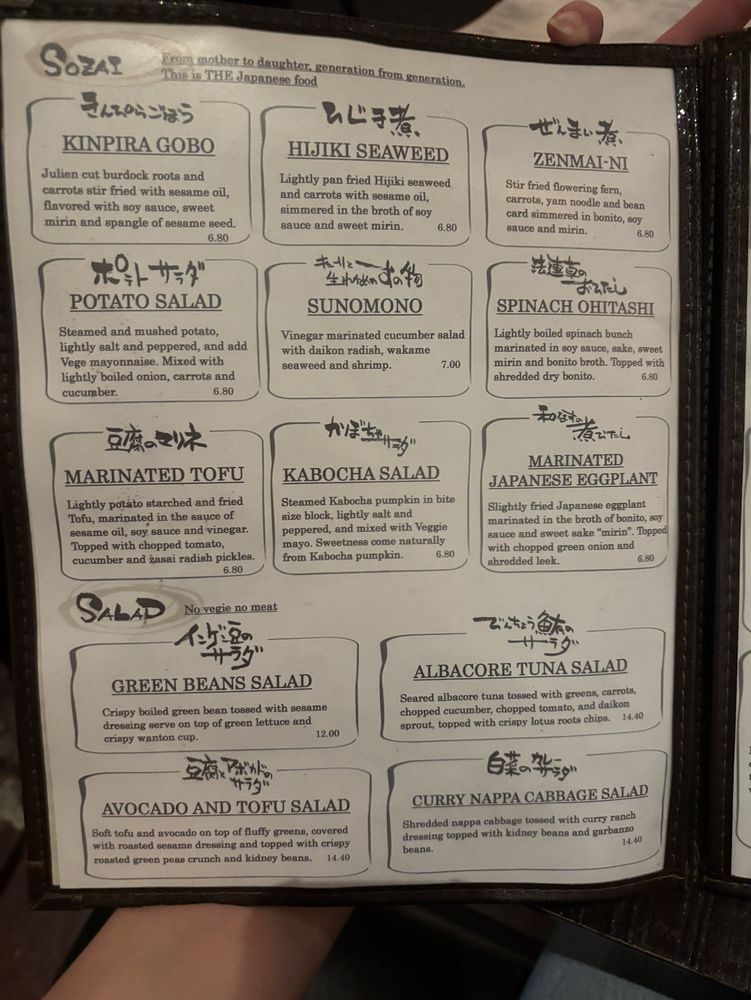 SOZAI
From mother to daughter, generation from generation.
This is THE Japanese food
きんぴらごぼう
KINPIRA GOBO
Julien cut burdock roots and
carrots stir fried with sesame oil,
flavored with soy sauce, sweet
mirin and spangle of sesame seed.
6.80
ひじき煮
HIJIKI SEAWEED
Lightly pan fried Hijiki seaweed
and carrots with sesame oil,
simmered in the broth of soy
sauce and sweet mirin. 6.80
ぜんまい煮
ZENMAI-NI
Stir fried flowering fern,
carrots, yam noodle and bean
card simmered in bonito, soy
sauce and mirin. 6.80
ポテトサラダ
POTATO SALAD
Steamed and mushed potato,
lightly salt and peppered, and add
Vege mayonnaise. Mixed with
lightly boiled onion, carrots and
cucumber. 6.80
SUNOMONO
Vinegar marinated cucumber salad
with daikon radish, wakame
seaweed and shrimp. 7.00
法連草の
おひたし
SPINACH OHITASHI
Lightly boiled spinach bunch
marinated in soy sauce, sake, sweet
mirin and bonito broth. Topped with
shredded dry bonito. 6.80
豆腐のマリネ
MARINATED TOFU
Lightly potato starched and fried
Tofu, marinated in the sauce of
sesame oil, soy sauce and vinegar.
Topped with chopped tomato,
cucumber and zasai radish pickles.
6.80
かぼちゃサラダ
KABOCHA SALAD
Steamed Kabocha pumpkin in bite
size block, lightly salt and
peppered, and mixed with Veggie
mayo. Sweetness come naturally
from Kabocha pumpkin. 6.80
和なすの
煮びたし
MARINATED
JAPANESE EGGPLANT
Slightly fried Japanese eggplant
marinated in the broth of bonito, soy
sauce and sweet sake "mirin". Topped
with chopped green onion and
shredded leek. 6.80
SALAD
No vegie no meat
インゲン豆の
サラダ
GREEN BEANS SALAD
Crispy boiled green bean tossed with sesame
dressing serve on top of green lettuce and
crispy wanton cup. 12.00
びんちょう鮪の
サラダ
ALBACORE TUNA SALAD
Seared albacore tuna tossed with greens, carrots,
chopped cucumber, chopped tomato, and daikon
sprout, topped with crispy lotus roots chips. 14.40
豆腐とアボカドの
サラダ
AVOCADO AND TOFU SALAD
Soft tofu and avocado on top of fluffy greens, covered
with roasted sesame dressing and topped with crispy
roasted green peas crunch and kidney beans. 14.40
白菜のカレー
サラダ
CURRY NAPPA CABBAGE SALAD
Shredded nappa cabbage tossed with curry ranch
dressing topped with kidney beans and garbanzo
beans. 14.40